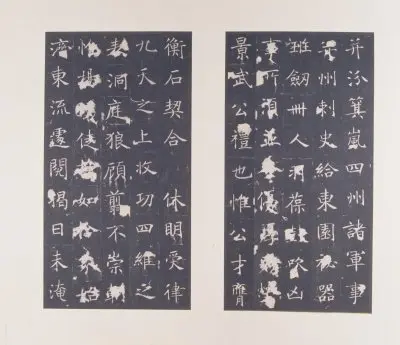 并汾箕嵐四州諸軍事
并州刺史給東園祕器
劍卌人羽葆鼓吹凶
事所須並優厚
景武公禮也惟公才膺
衡石契合 休明受律
九天之上收功四維之
表洞庭狼顧翦不崇朝
揚使如拾始
濟東流遽閱揭日未淹